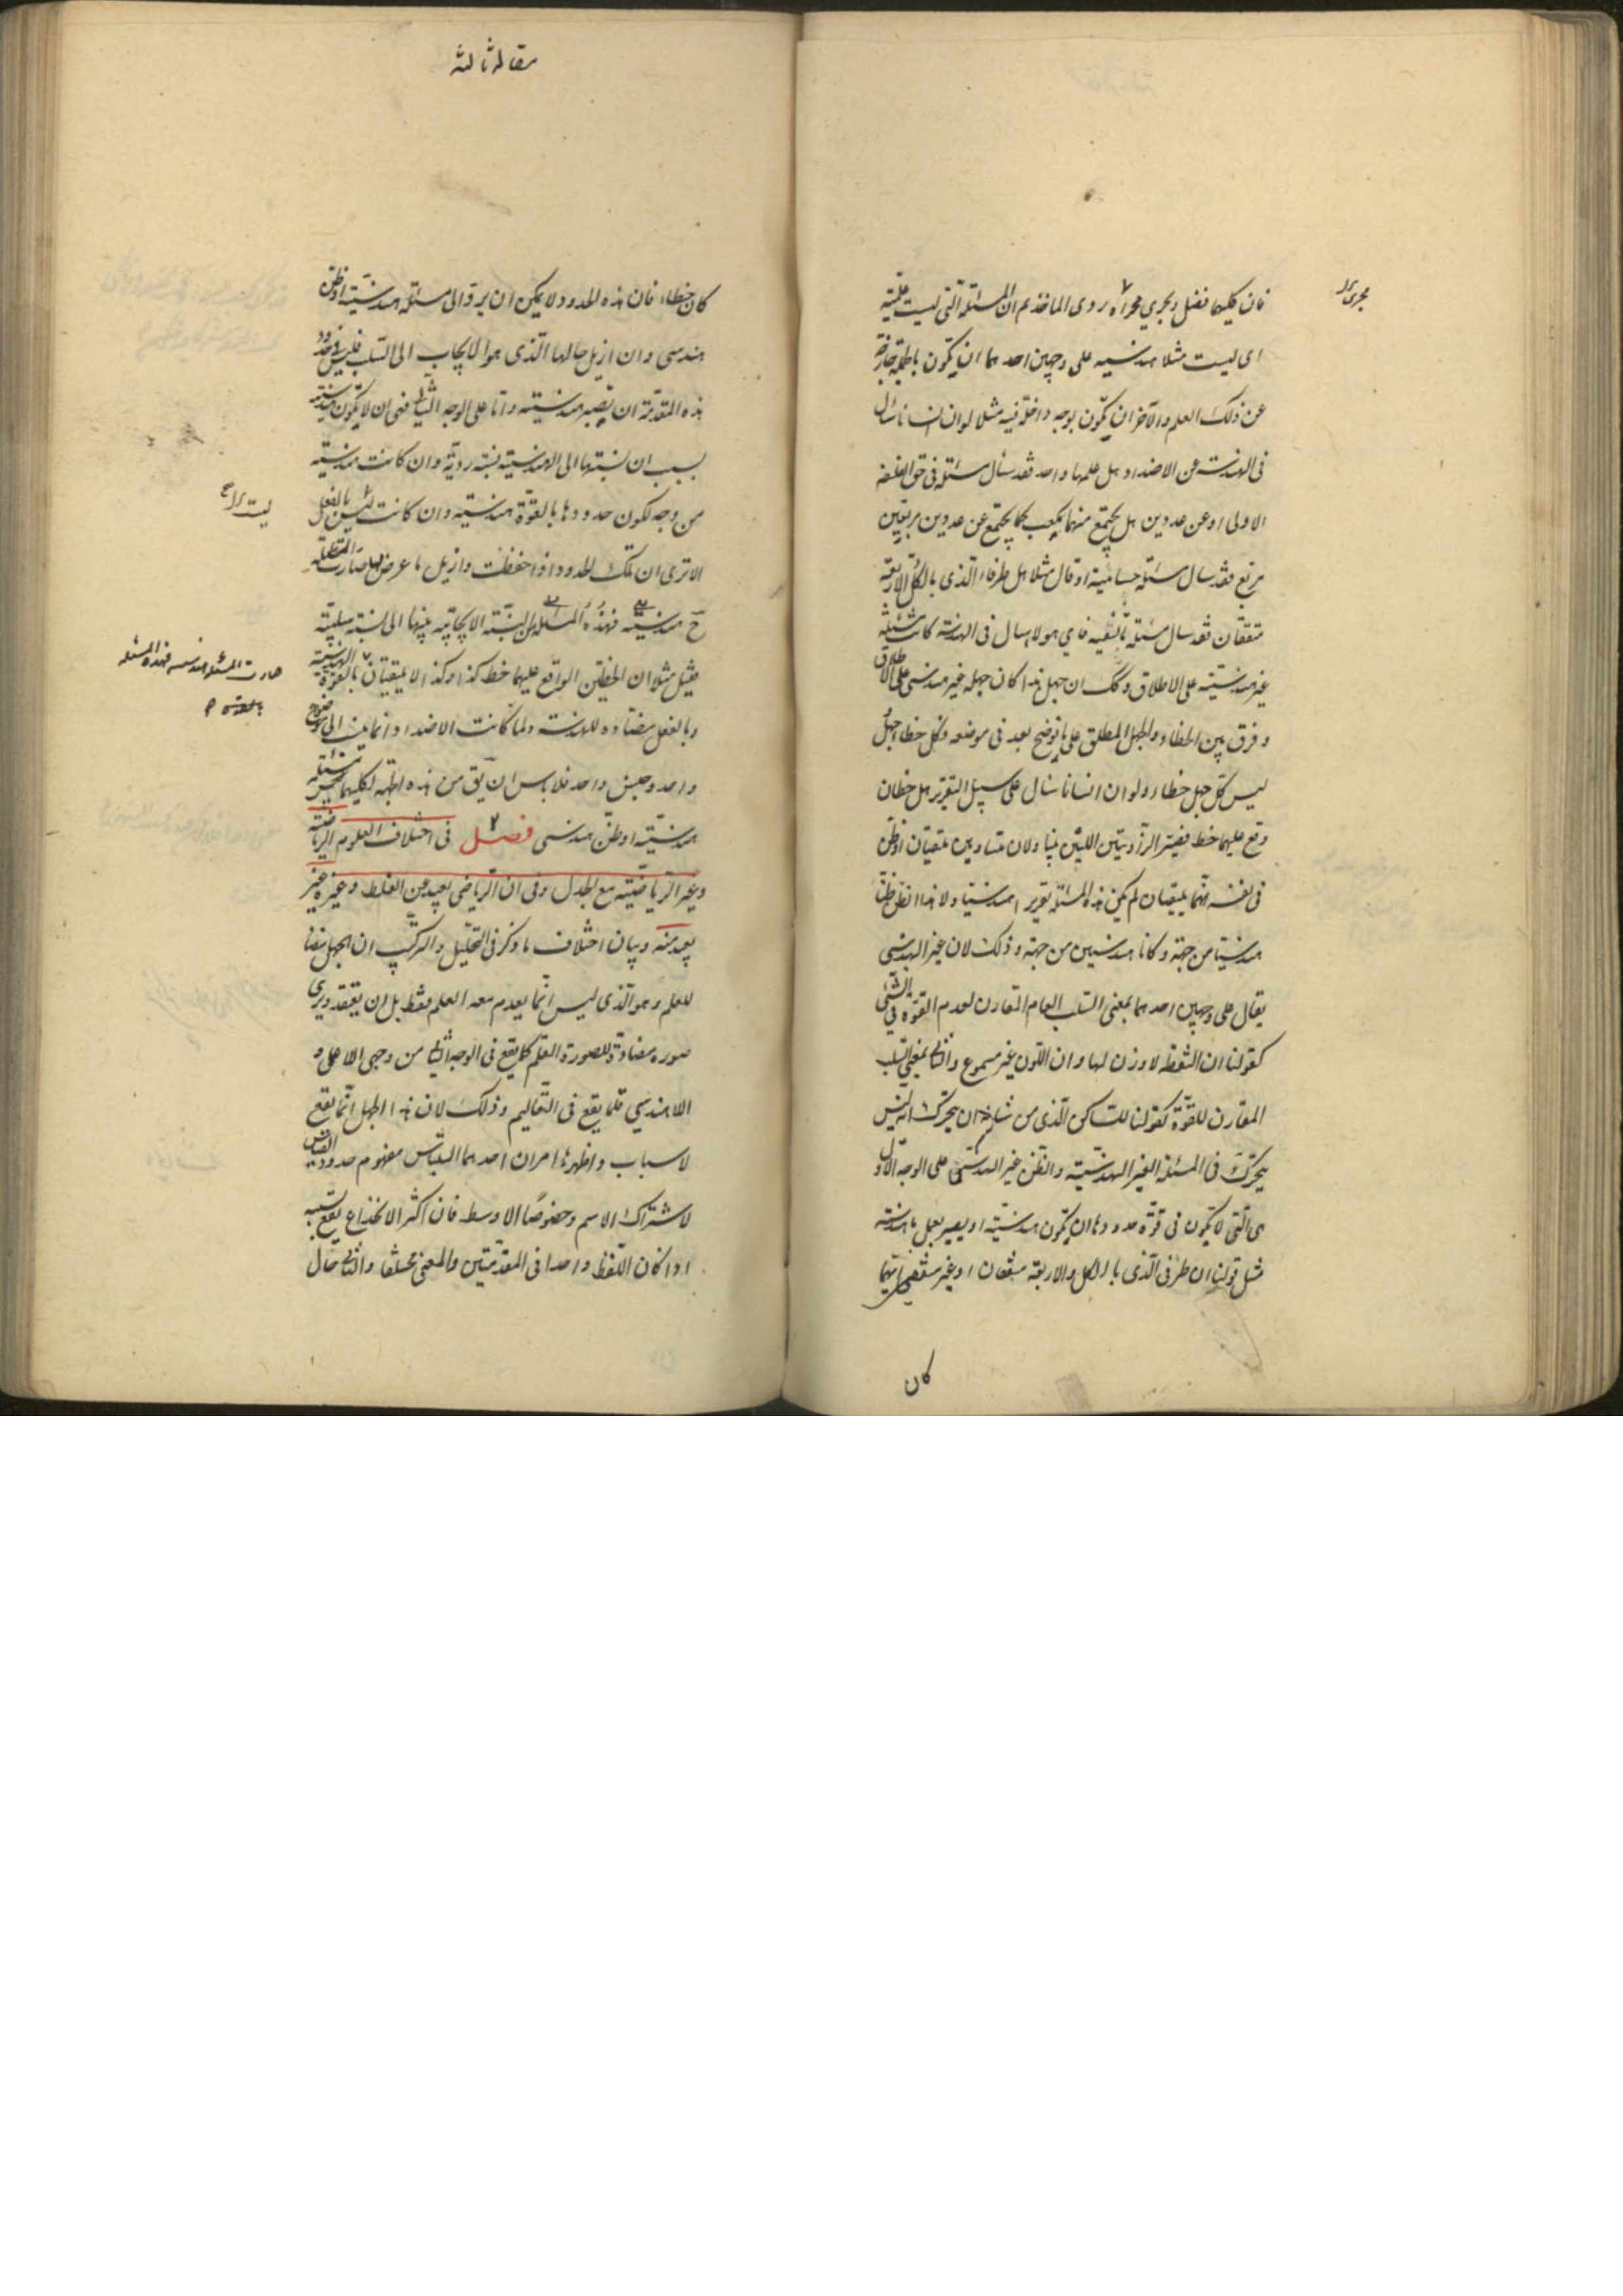 فان كليهما فضل ويجرى مجراه ردى الماخذ ثم ان المسئلة التى ليست علمية
مجرى
اى ليست مثلا هندسيه على وجهين احدهما ان يكون باطمة خارجة
عن ذلك العلم والآخر ان يكون بوجه داخلة فيه مثلا لو ان انسانا سال
فى الهندسة عن الاضداد هل علمها واحد فقد سأل مسئلة فى حق الفلسفه
الاولى او عن عددين هل يجتمع منهما مكعب كما يجتمع عن عددين مربعين
مربع فقد سال مسئلة حسابية او قال مثلا هل طرفاء الذى بالكل والاربعة
متفقان فقد سال مسئلة تأليفيه فاي هولا سال فى الهندسة كانت مسئلته
غير هندسية على الاطلاق وكك ان جهل هذا كان جهله غير هندسى على الاطلاق
وفرق بين الخطاء والجهل المطلق على ما توضح بعد فى موضعه وكل خطاء جهل
ليس كل جهل خطاء ولو ان انسانا سال على سبيل التقرير هل خطان
وقع عليهما خط فصير الزاويتين اللتين تبادلان متساويين يلتقيان او ظن
فى نفسه انهما يلتقيان لم يكن هذه المسئلة تقريرا هندسيا ولا هذا الظن ظنا
هندسيا من جهة وكانا هندسيين من جهة وذلك لان غير الهندسى
يقال على وجهين احدهما بمعنى السلب العام المقارن لعدم القوة فى الشئ
كقولنا ان النقطة لا وزن لها وان اللون غير مسموع والثانى بمعنى السلب
المقارن للقوة كقولنا للساكن الذى من شانه ان يتحرك انه ليس
يتحرك فى المسئلة الغير الهندسية والظن غير الهندسى على الوجه الاول
هى التى لا يكون فى قوة حدودها ان يكون هندسية او يصير بعمل ما هندسة
مثل قولنا ان طرفى الذى بالكل والاربعة متفقان او غير متفقين ايهما
كان
مقاله ثالثه
كان خطاء فان هذه الحدود لا يمكن ان يرد الى مسئلة هندسية او ظن
هندسى وان ازيل حالها الذى هو الايجاب الى السلب فليس فى حدود
هذه المقدمة ان تصير هندسية واما على الوجه الثانى فهى ان لا يكون هندسية
بسبب ان نسبتها الى الهندسية نسبة ردية وان كانت هندسية
من وجه لكون حدودها بالقوة هندسية وان كانت ليس بالفعل
ليست
الا ترى ان تلك الحدود اذا حفظت وازيل ما عرض لها صارت المسئلة
ح هندسية فهذه المسئلة من النسبة الايجابية بينها الى نسبة سلبية
صارت المسئلة هندسيه فهذه المسئله
بالقوة
فقيل مثلا ان الخطين الواقع عليهما خط كذا وكذا لا يلتقيان بالقوة الهندسية
وبالفعل مضادة للهندسة ولما كانت الاضداد انما ينسب الى موضوع
واحد وجنس واحد فلا باس ان يق من هذه الجهة لكليهما مسئلة
هندسية او ظن هندسى فصل ٢ فى اختلاف العلوم الرياضية
وغير الرياضية مع الجدل وفى ان الرياضى بعيد عن الغلط وغيره غير
بعيد منه وبيان اختلاف ما ذكر فى التحليل والتركيب ان الجهل مضاد
للعلم وهو الذى ليس انما يعدم معه العلم فقط بل ان يعتقد ويرى
صورة مضادة للصورة العلم كما يقع فى الوجه الثانى من وجهى اللاعلمى و
اللاهندسي قلما يقع فى التعاليم وذلك لان هذا الجهل انما يقع
لاسباب واظهرها امران احدهما التباس مفهوم حدود القياس
لاشتراك الاسم وخصوصا الاوسط فان اكثر الانخداع يقع بسببه
اذا كان اللفظ واحدا فى المقدمتين والمعنى مختلفا والثانى حال